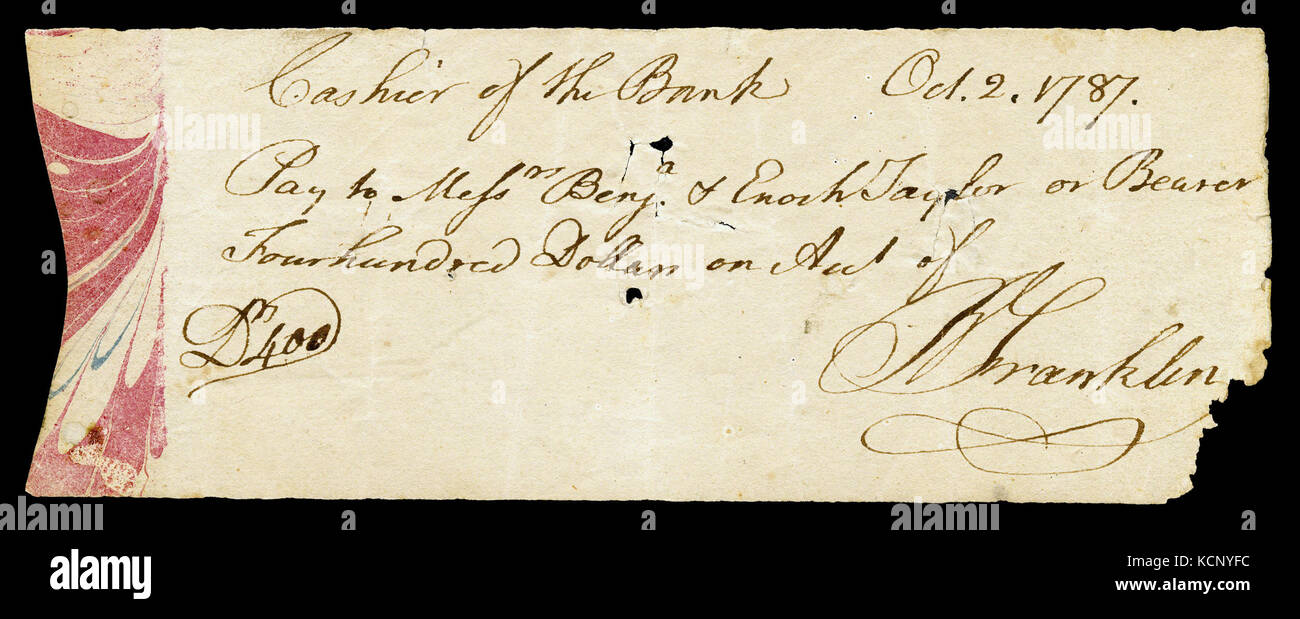 Cashier of the Bank Oct. 2. 1787.
Pay to Messrs Benja. & Enoch Taylor or Bearer
Fourhundred Dollars on Acct of
Drs 400
B Franklin
alamy
Image ID: KCNYFC
www.alamy.com